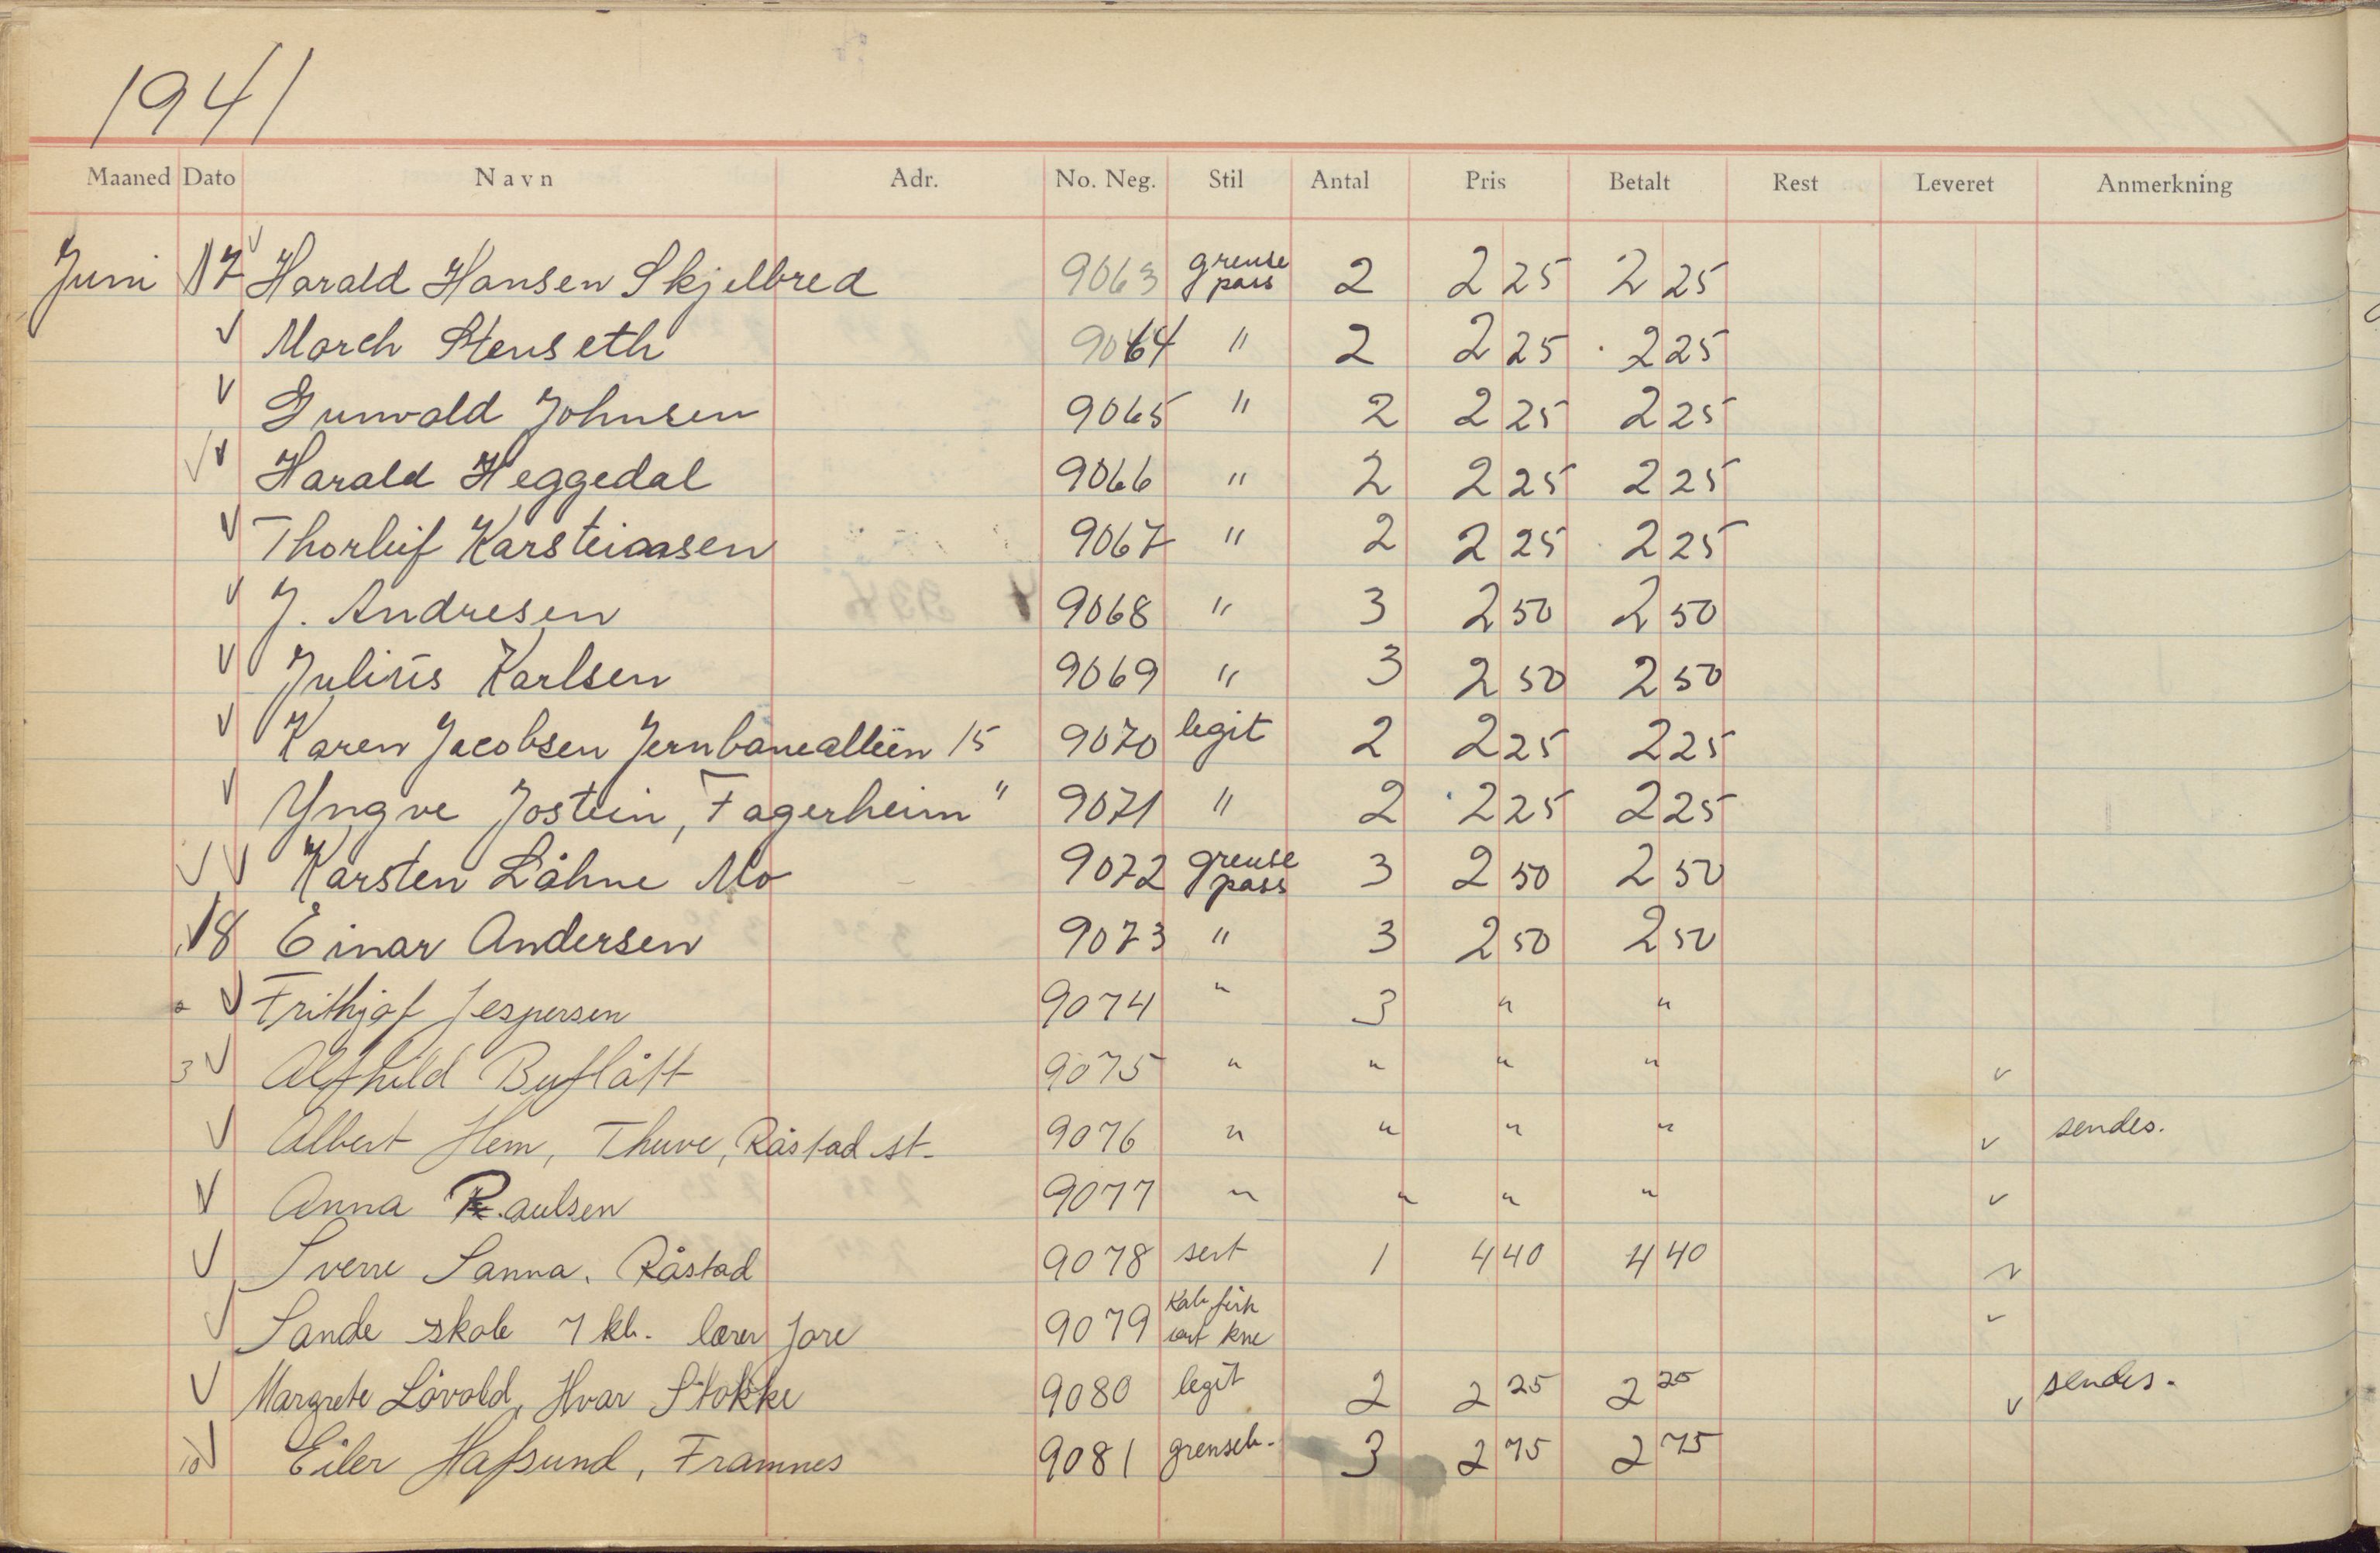 1941
Maaned Dato Navn Adr. No. Neg. Stil Antal Pris Betalt Rest Leveret Anmerkning
Juni 17 Harald Hansen Skjelbred 9063 grense pass 2 2 25 2 25
Morch Stenseth 9064 " 2 2 25 2 25
Gunvald Johnsen 9065 " 2 2 25 2 25
Harald Heggedal 9066 " 2 2 25 2 25
Thorleif Karsteinsen 9067 " 2 2 25 2 25
J. Andresen 9068 " 3 2 50 2 50
Julius Karlsen 9069 " 3 2 50 2 50
Karen Jacobsen Jernbanealleen 15 9070 legit 2 2 25 2 25
Yngve Jostein, Fagerheim" 9071 " 2 2 25 2 25
Karsten Låhne Mo 9072 grense pass 3 2 50 2 50
18 Einar Andersen 9073 " 3 2 50 2 50
Frithjof Jespersen 9074 " 3 " "
3 Alfhild Buflått 9075 " " " "
Albert Hem, Thuve, Råstad st. 9076 " " " " sendes.
Anna Paulsen 9077 " " " "
Sverre Sanna. Råstad 9078 sert 1 4 40 4 40
Sande skole 7 kl. lærer Jore 9079 Kab kne
Margrete Lövold, Hvar Stokke 9080 legit 2 2 25 2 25 sendes.
10 Eiler Hafsund, Framnes 9081 grenseb. 3 2 75 2 75